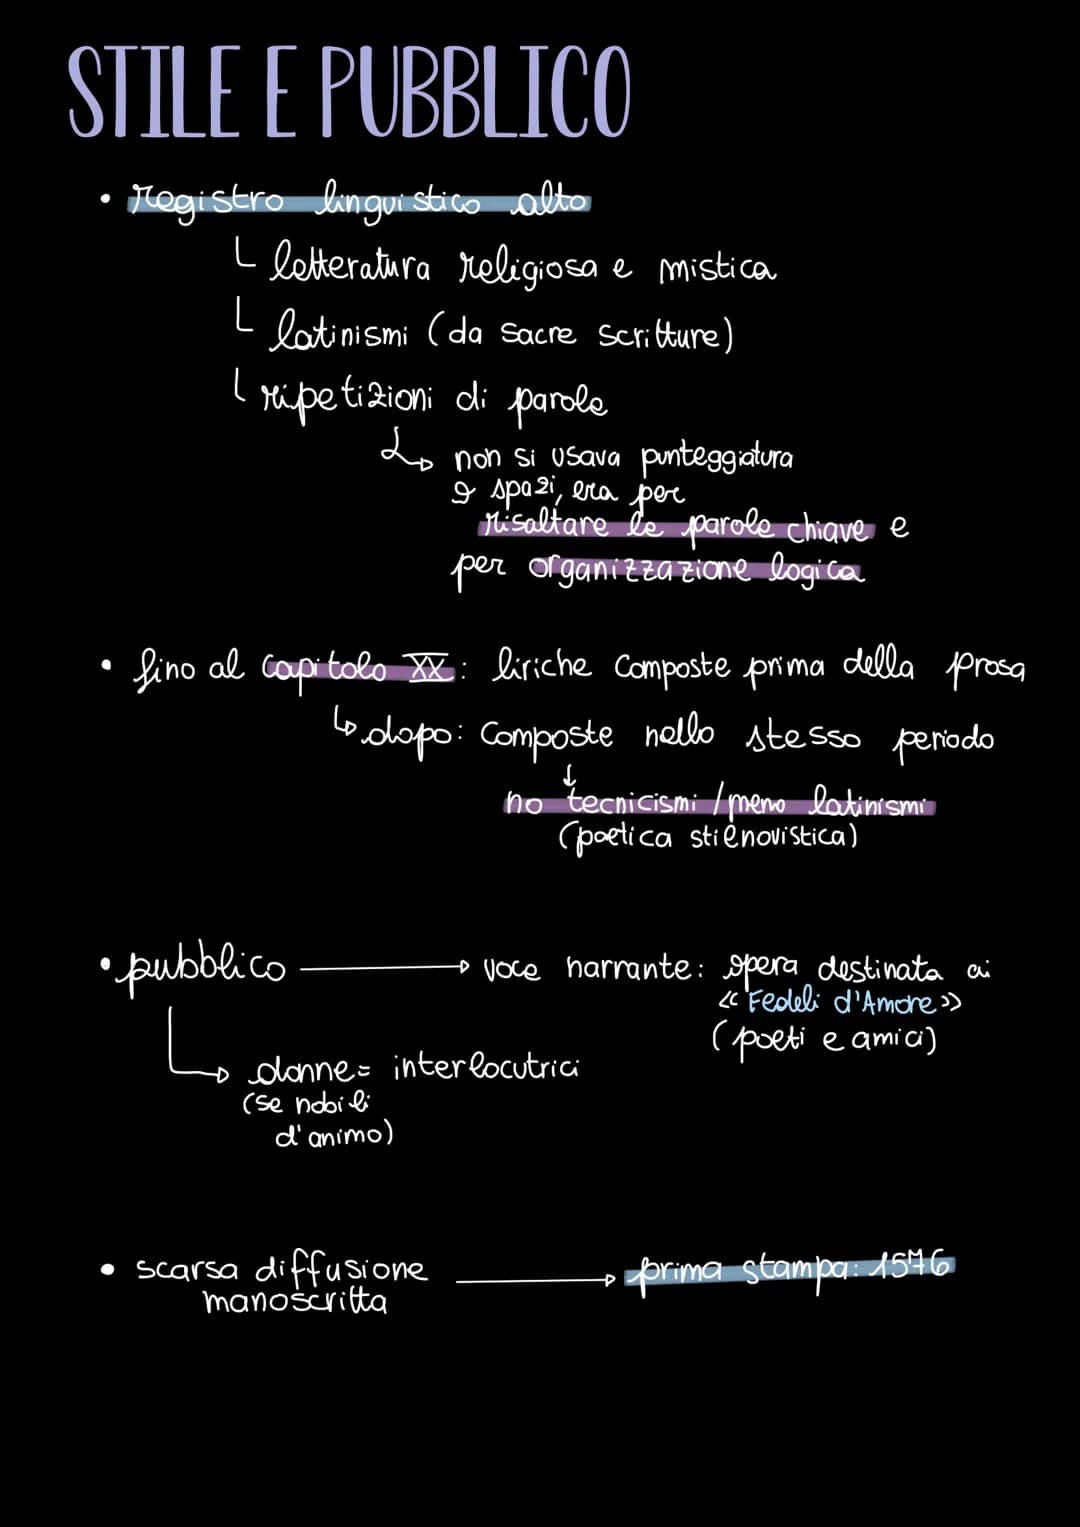 STILE E PUBBLICO
• registro linguistico alto
letteratura religiosa e mistica
latinismi (da sacre scritture)
ripetizioni di parole
non si usava punteggiatura
e spazi, era per
risaltare le parole chiave e
per organizzazione logica
• fino al capitolo XX: liriche composte prima della prosa
dopo: composte nello stesso periodo
no tecnicismi / meno latinismi
(poetica stilnovistica)
• pubblico → voce narrante: opera destinata ai
«Fedeli d'Amore»
(poeti e amici)
donne = interlocutrici
(se nobili
d'animo)
• scarsa diffusione → prima stampa: 1576
manoscritta